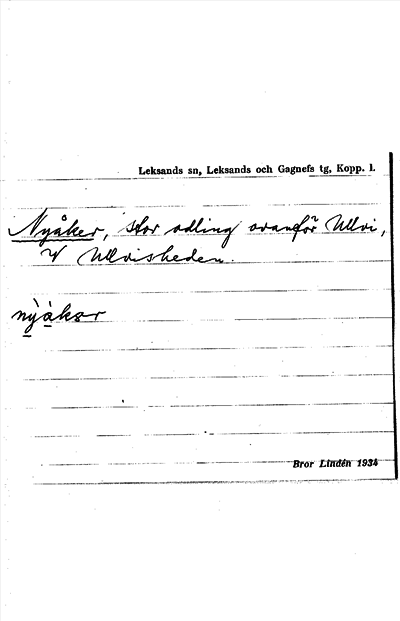 Leksands sn, Leksands och Gagnefs tg, Kopp. l.
Nyåker, stor odling ovanför Ullvi,
V Ullvisheden.
nỳåkər
Bror Lindén 1934